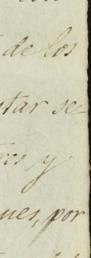 de los
tar se-
res y
ues, por